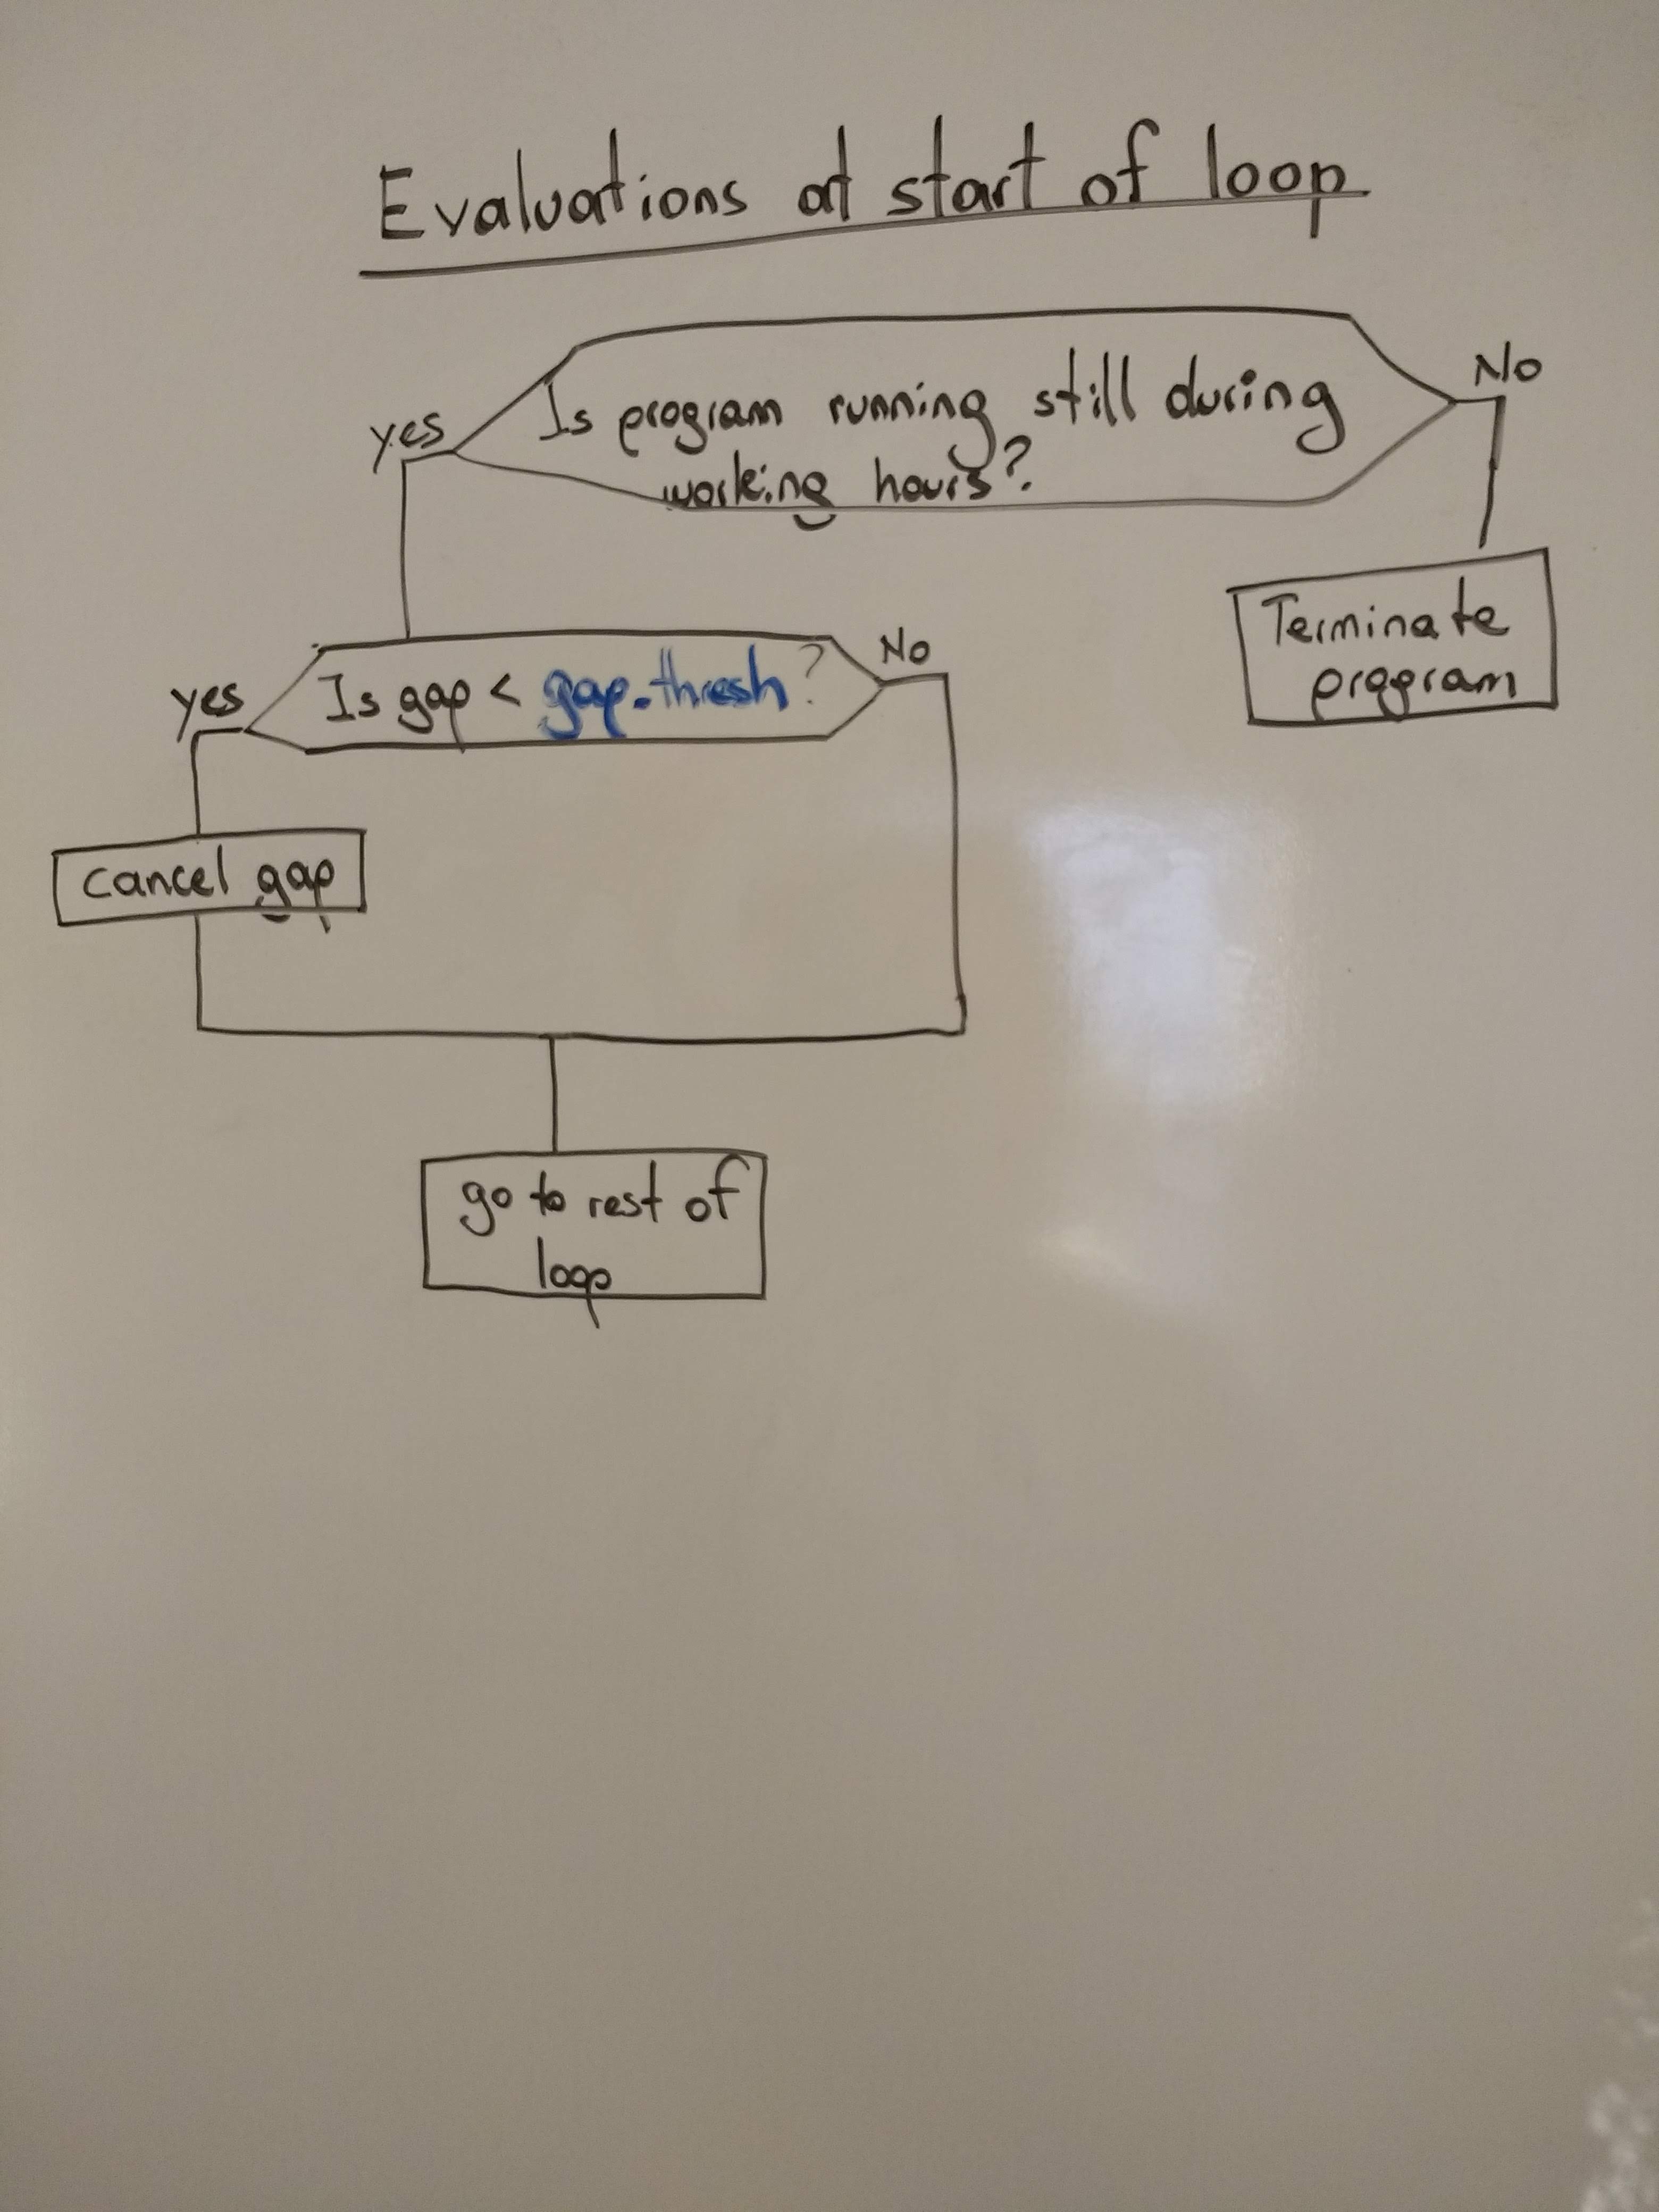 Evaluations at start of loop
No
Is program running still during
working hours?
yes
Terminate
program
No
Is gap < gap_thresh?
yes
cancel gap
go to rest of
loop